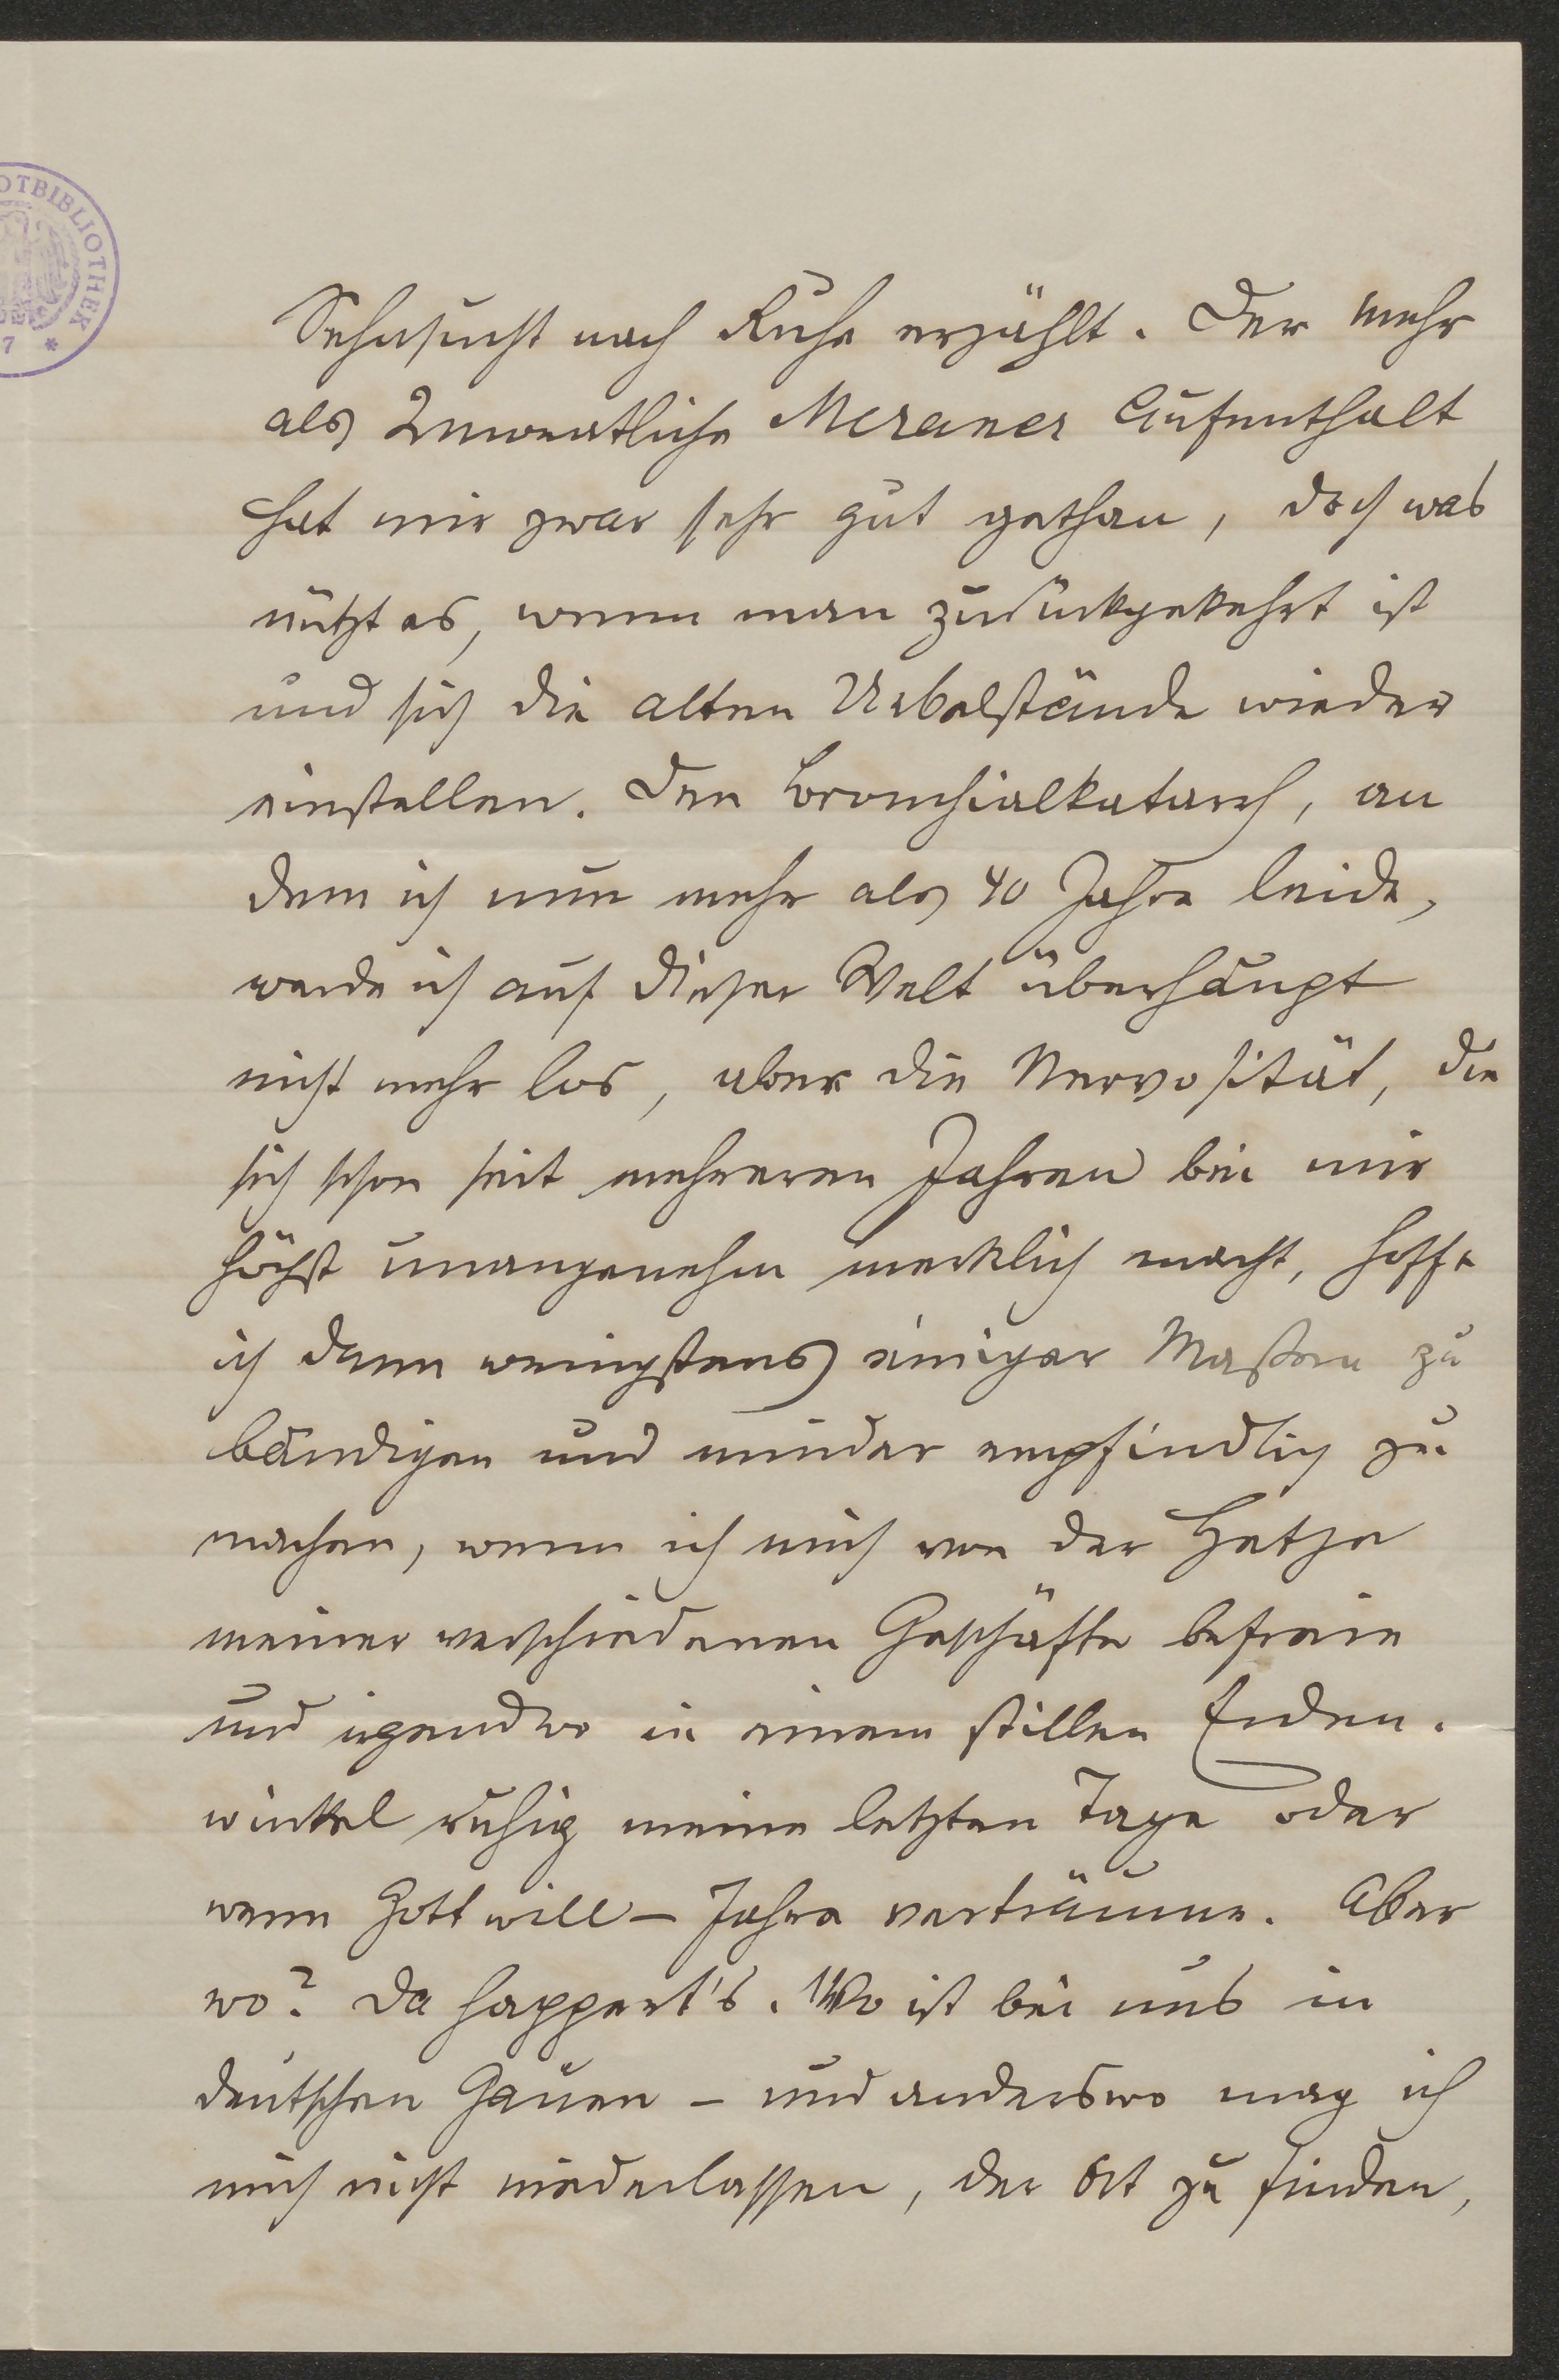 OTBIBLIOTHEK
7 *
Sehnsucht nach Ruhe erzählt. Der mehr
als 2monatliche Meraner Aufenthalt
hat mir zwar sehr gut gethan, doch was
nützt es, wenn man zurückgekehrt ist
und sich die alten Uebelstände wieder
einstellen. Den Bronchialkatarrh, an
dem ich nun mehr als 40 Jahre leide,
werde ich auf dieser Welt überhaupt
nicht mehr los, aber die Nervosität, die
sich schon seit mehreren Jahren bei mir
höchst unangenehm merklich macht, hoffe
ich dann wenigstens einiger Maßen zu
bändigen und minder empfindlich zu
machen, wenn ich mich von der Hetze
meiner verschiedenen Geschäfte befreie
und irgendwo in einem stillen Erden-
winkel ruhig meine letzten Tage oder
wenn Gott will – Jahre verträume. Aber
wo? da happert's. Wo ist bei uns in
deutschen Gauen – und anderswo mag ich
mich nicht niederlassen, der Ort zu finden,